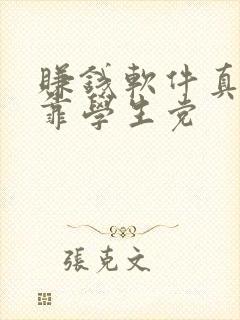 賺錢軟件真
靠學生党
張克文